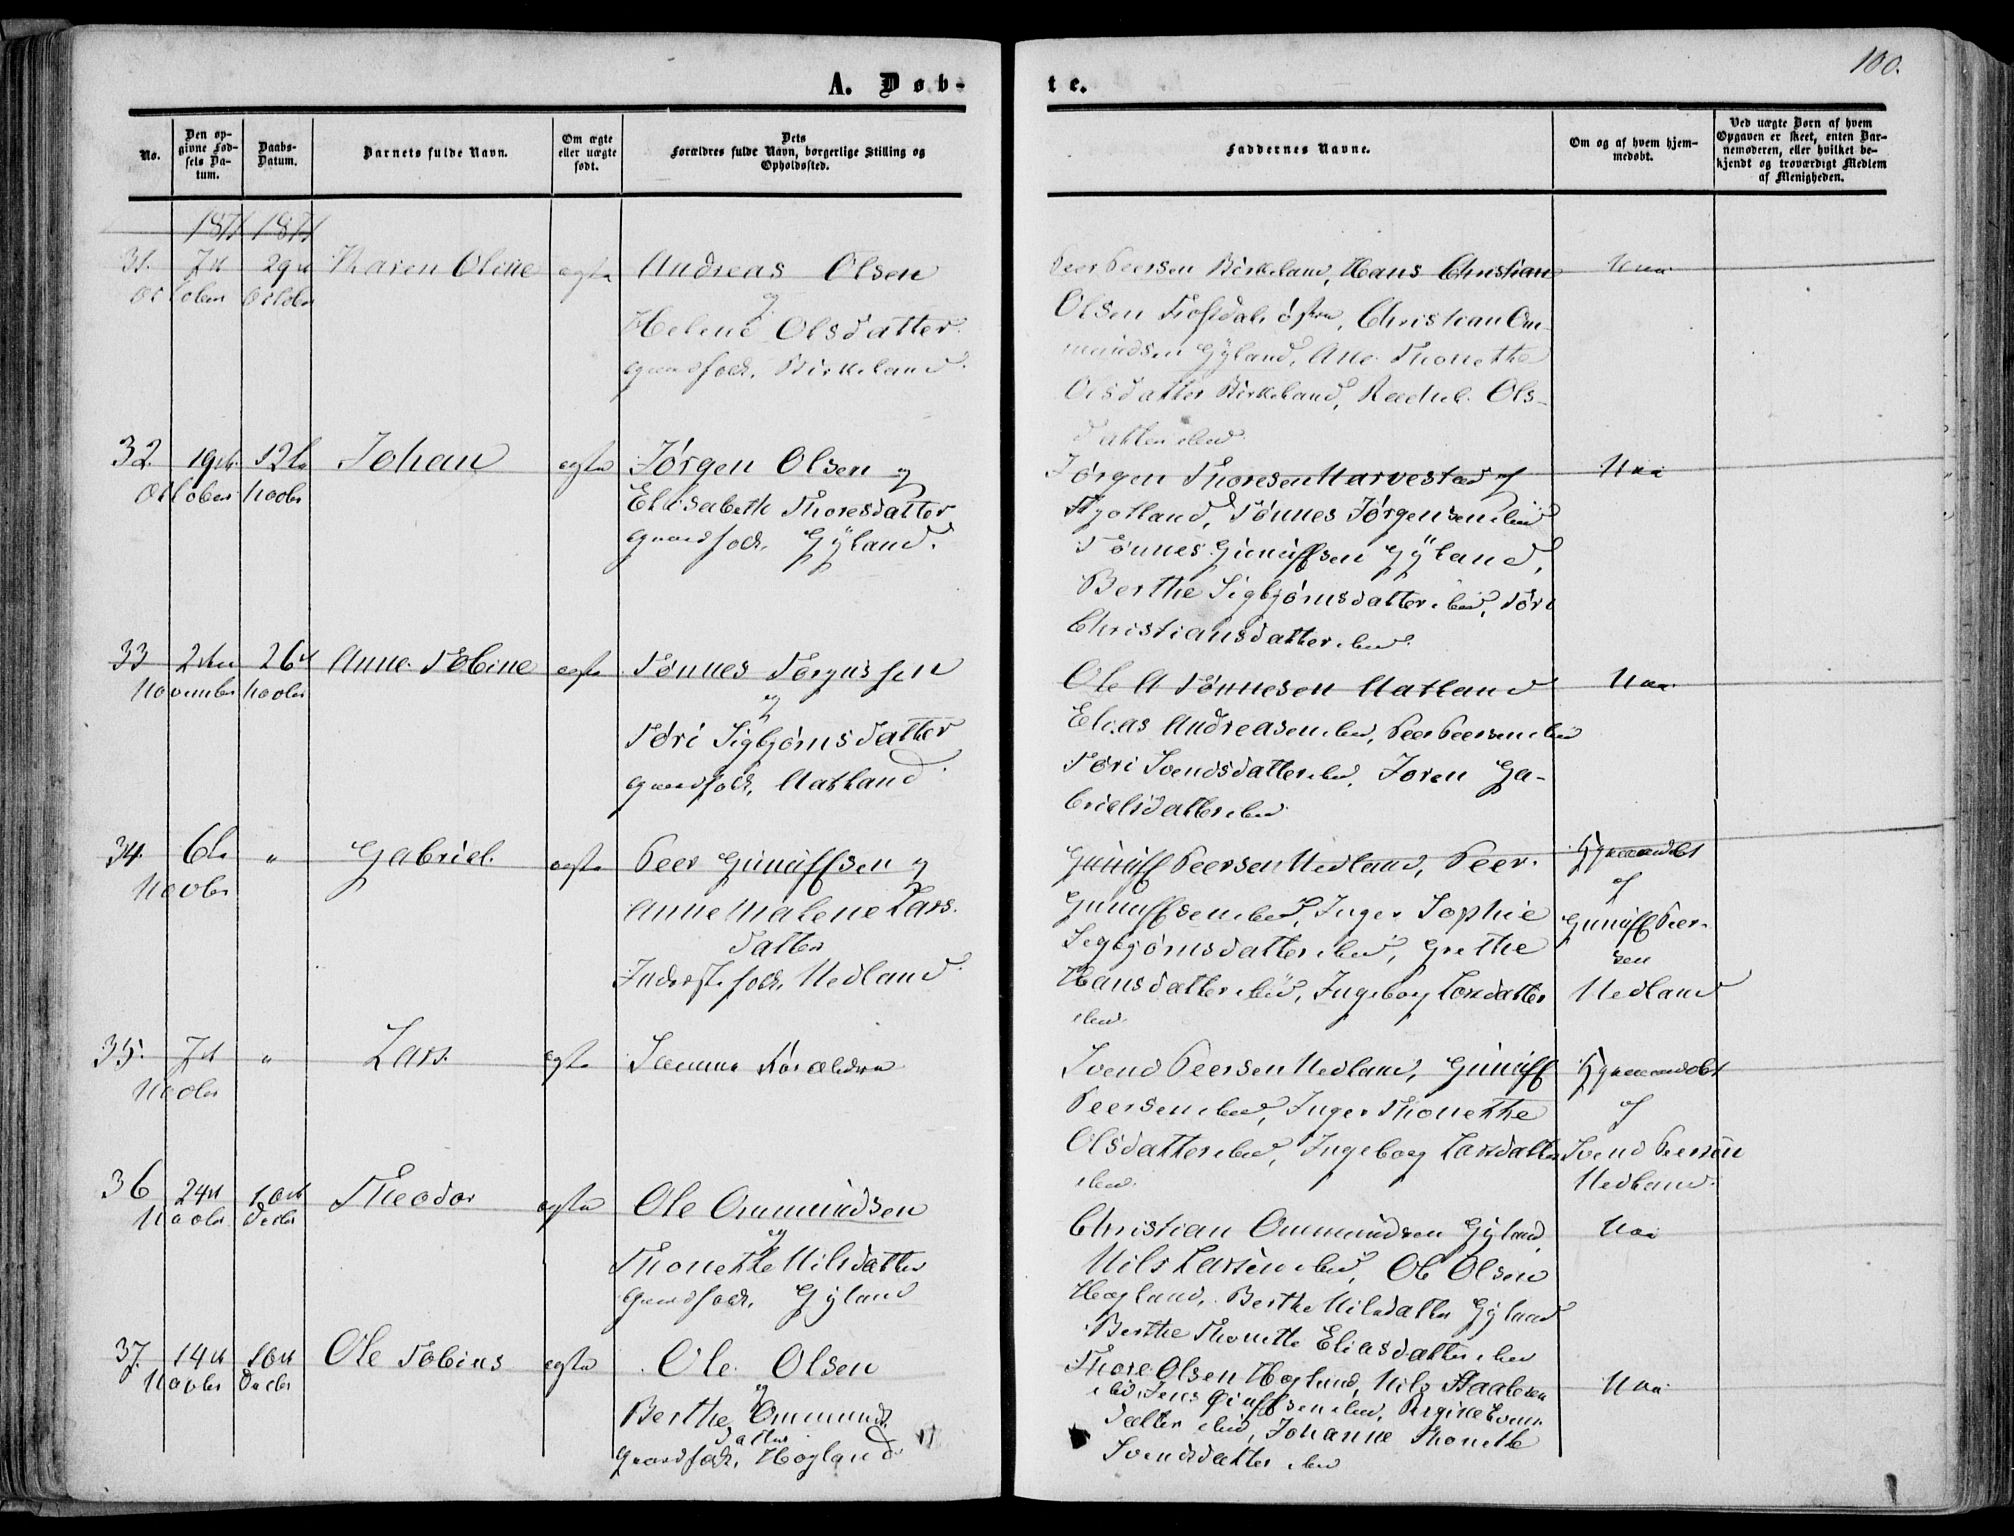 100.
A. Døb-
te.
No.
Den op-
givne Fød-
sels Da-
tum.
Daabs-
Datum.
Barnets fulde Navn.
Om ægte
eller uægte
født.
Dets
Forældres fulde Navn, borgerlige Stilling og
Opholdssted.
Faddernes Navne.
Om og af hvem hjem-
medøbt.
Ved uægte Børn af hvem
Opgaven er skeet, enten Bar-
nemoderen, eller hvilket be-
kjendt og troværdigt Medlem
af Menigheden.
1871 1871
31. 7de October
29de October
Karen Oline
egte
Andreas Olsen
og
Helene Olsdatter
Gaardfolk, Birkeland.
Peer Peersen Birkeland, Hans Christian
Olsen østre, Christian Om-
mundsen Gÿland, Ane Thonette
Olsdatter Birkeland, Rachel Ols-
datter ibid.
Nei
32. 19de October
12te Novbr
Johan
egte
Jørgen Olsen og
Elisabeth Thoresdatter
Gaardfolk, Gÿland.
Jørgen Thoresen Narvestad af
Fjotland, Tønnes Jørgensen ibid
Tønnes Guniufsen Gÿland,
Berthe Sigbjørnsdatter ibid, Tøri
Christiansdatter ibid.
Nei
33 2den November
26de Novbr
Anne Tobine
egte
Tønnes Torgussen
og
Tøri Sigbjørnsdatter
Gaardfolk, Natland.
Ole A Tønnesen Natland
Elias Andreasen ibid, Peer Peersen ibid
Tøri Svendsdatter ibid, Joren Ga-
brielsdatter ibid
Nei
34. 6te Novbr
"
Gabriel.
egte
Peer Guniufsen og
Anne Malene Lars-
datter
Inderstefolk, Nedland.
Guniuf Peersen Nedland, Peer
Guniufsen ibid, Inger Sophie
Sigbjørnsdatter ibid, Grethe
Hansdatter ibid, Ingeborg Larsdatter
ibid.
Hjemmedøbt
af
Guniuf Peer-
sen
Nedland
35. 7de Novbr
"
Lars.
egte
Samme Forældre
Svend Peersen Nedland, Guniuf
Peersen ibid, Inger Thonette
Olsdatter ibid, Ingeborg Larsdatter
ibid.
Hjemmedøbt
af
Svend Peersen
Nedland.
36 24de Novbr
10de Decbr
Theodor
egte
Ole Ommundsen
og
Thonette Nilsdatter
Gaardfolk, Gÿland
Christian Ommundsen Gÿland,
Nils Larsen ibid, Ole Olsen
Høgland, Berthe Nilsdatter Gÿland
Berthe Thonette Eliasdatter ibid
Nei
37. 14de Novbr
10de Decbr
Ole Tobias
egte
Ole Olsen
og
Berthe Ommunds
datter
Gaardfolk, Høgland
Thore Olsen Høgland, Nils
ibid, Jens ibid,
datter ibid, Johanne Thonette
Svendsdatter ibid
Nei